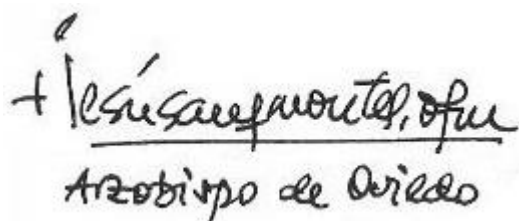 + Jesús Sanz Montes, ofm
Arzobispo de Oviedo